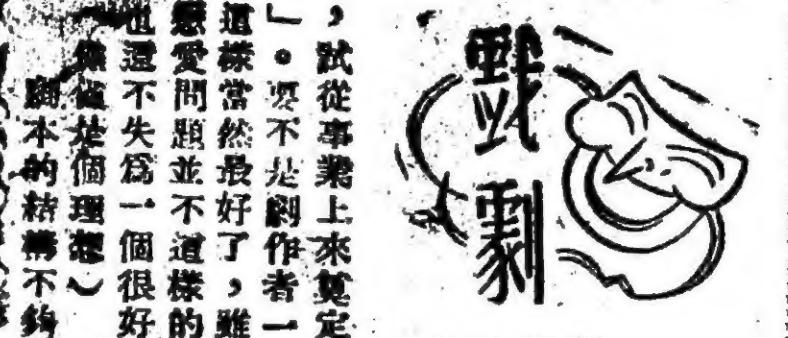 戲劇
，試從事業上來奠定
」。要不是劇作者一
這樣當然最好了，雖
戀愛問題並不這樣的
也還不失爲一個很好
是個理想）
劇本的結構不夠